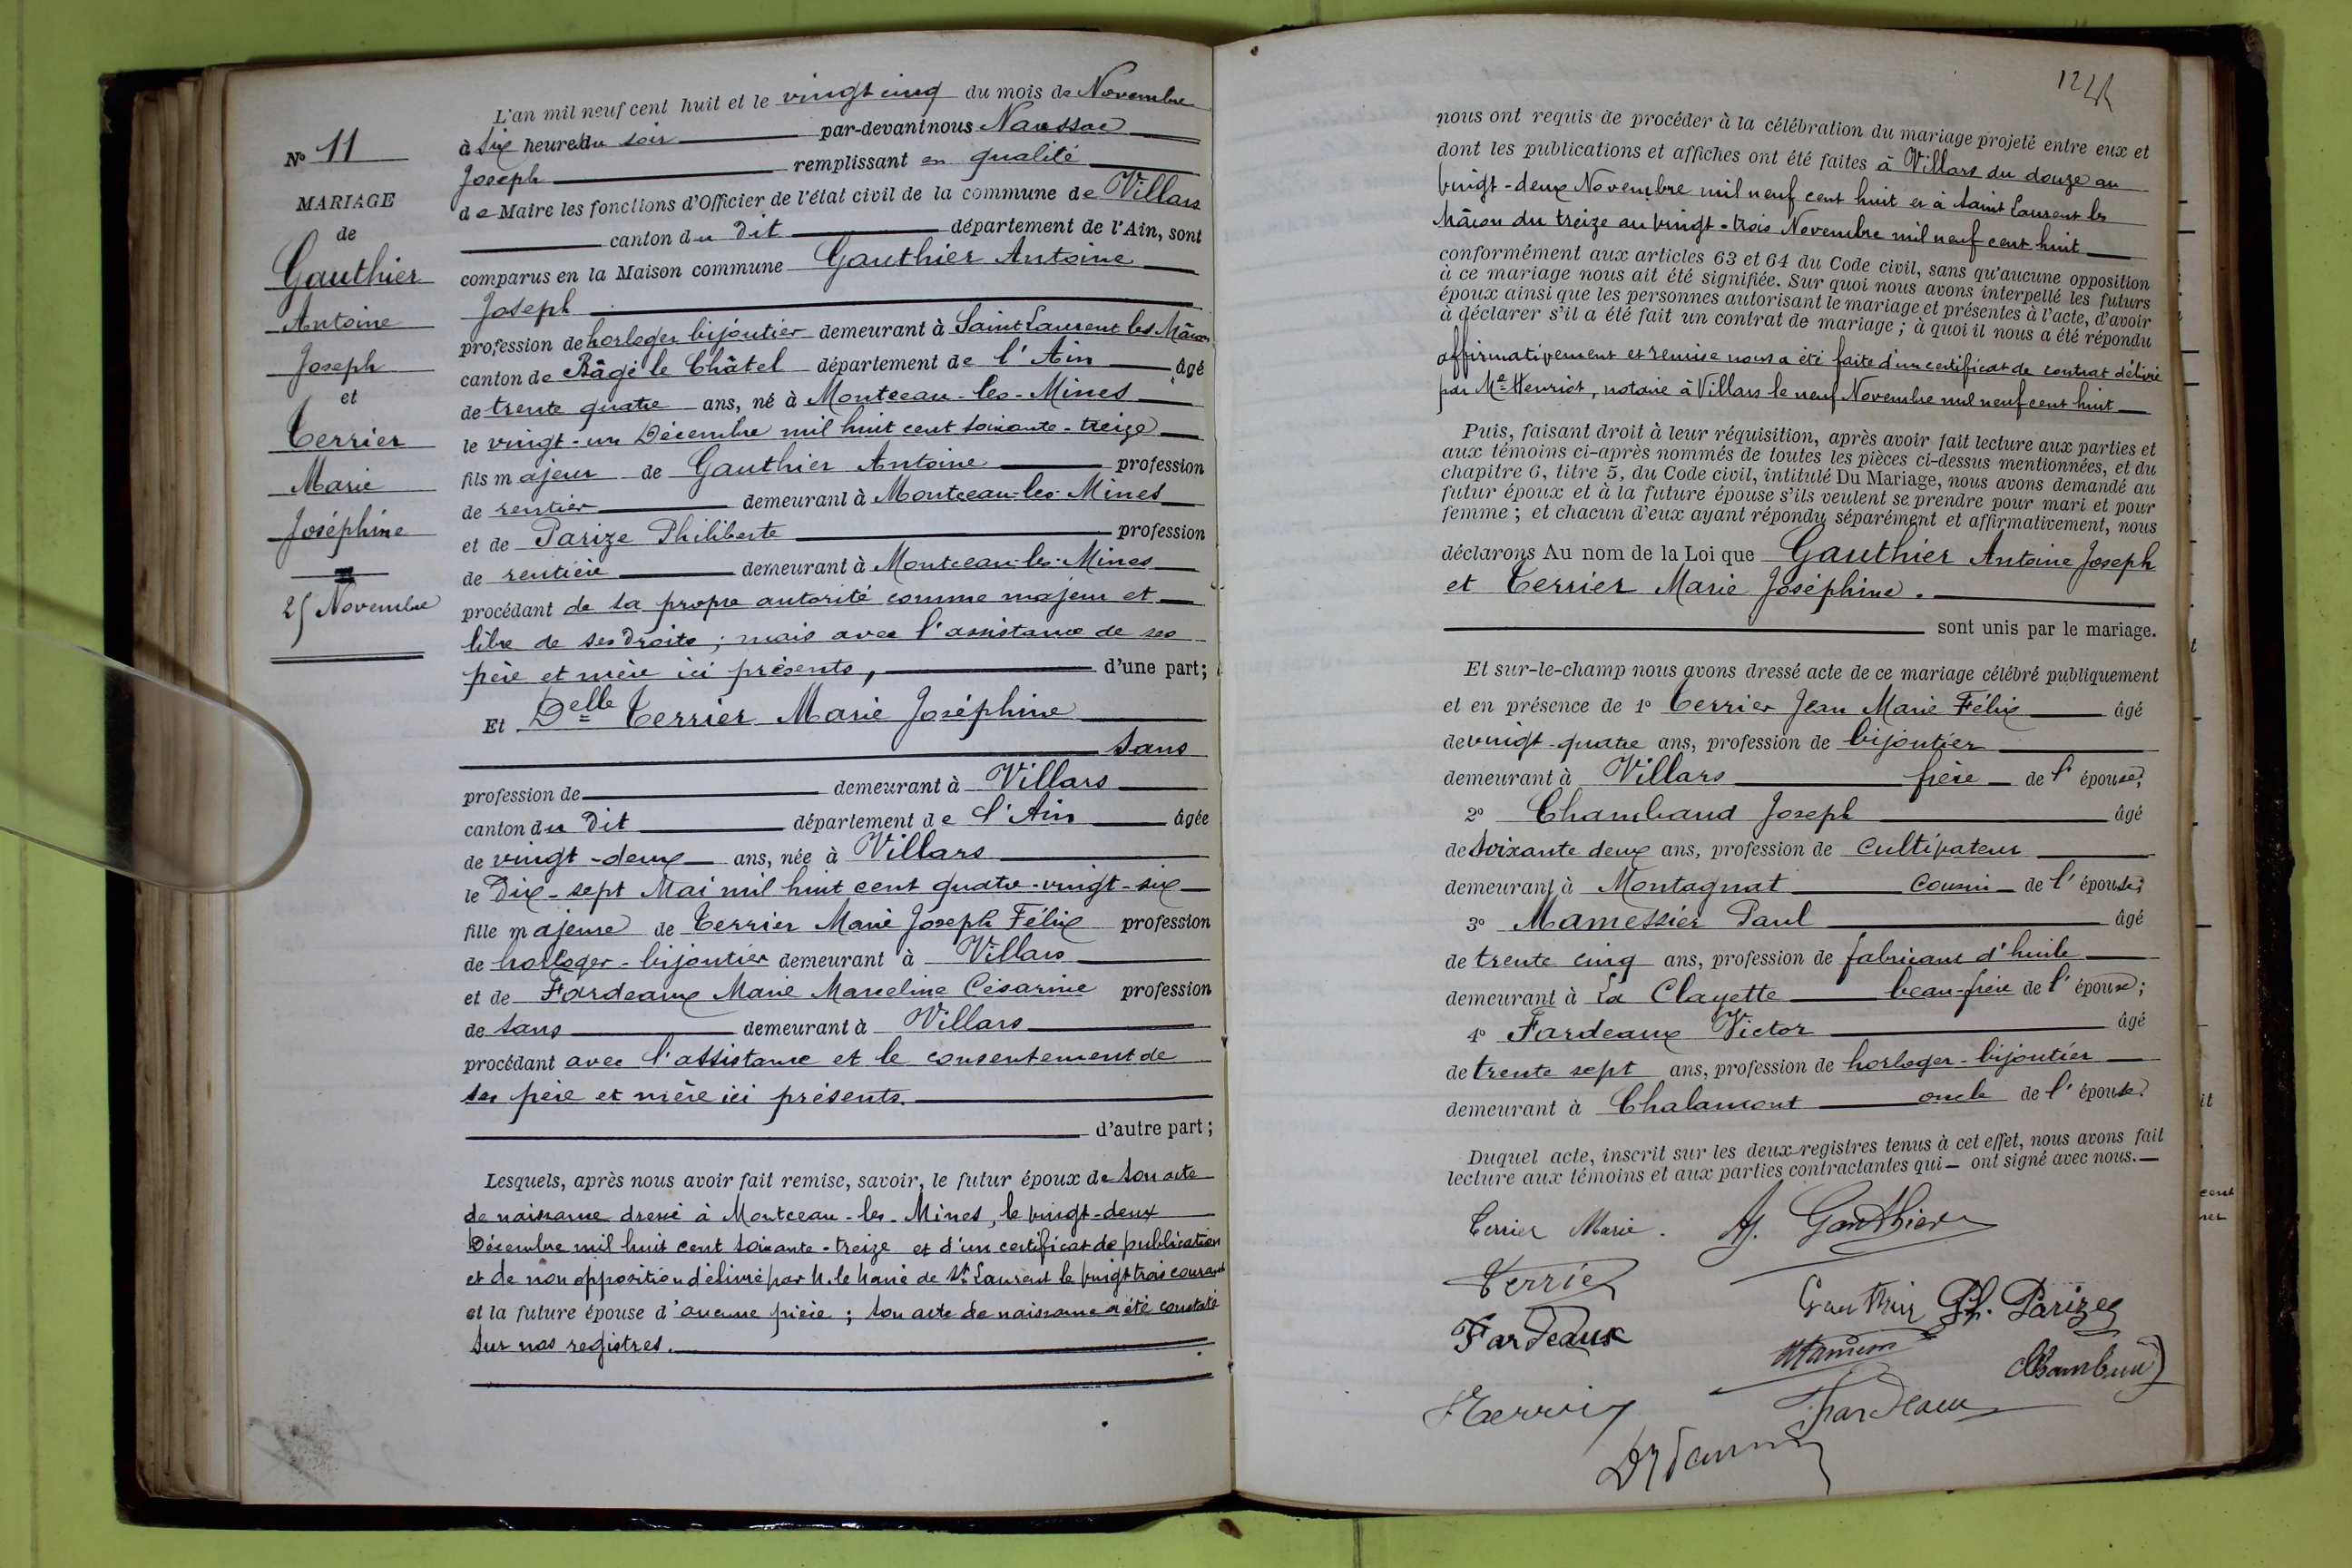 N° 11
MARIAGE
de
Gauthier
Antoine
Joseph
et
Terrier
Marie
Joséphine
25 Novembre
L'an mil neuf cent huit et le vingt cinq du mois de Novembre
à six heures du soir par-devant nous Naussac
Joseph remplissant en qualité
de Maire les fonctions d'Officier de l'état civil de la commune de Villars
canton du dit département de l'Ain, sont
comparus en la Maison commune Gauthier Antoine
Joseph
profession de horloger bijoutier demeurant à Saint Laurent les Mâcon
canton de Bâgé le Châtel département de l'Ain âgé
de trente quatre ans, né à Montceau-les-Mines
le vingt-un Décembre mil huit cent soixante-treize
fils majeur de Gauthier Antoine profession
de rentier demeurant à Montceau-les-Mines
et de Parize Philiberte profession
de rentière demeurant à Montceau-les-Mines
procédant de sa propre autorité comme majeur et
libre de ses droits ; mais avec l'assistance de ses
père et mère ici présents, d'une part ;
Et Delle Terrier Marie Joséphine
sans
profession de demeurant à Villars
canton du dit département de l'Ain âgée
de vingt-deux ans, née à Villars
le Dix-sept Mai mil huit cent quatre-vingt-six
fille majeure de Terrier Marie Joseph Félix profession
de horloger-bijoutier demeurant à Villars
et de Fardeaux Marie Marceline Césarine profession
de sans demeurant à Villars
procédant avec l'assistance et le consentement de
ses père et mère ici présents.
d'autre part ;
Lesquels, après nous avoir fait remise, savoir, le futur époux de son acte
de naissance dressé à Montceau-les-Mines, le vingt-deux
Décembre mil huit cent soixante-treize et d'un certificat de publication
et de non opposition délivré par M. le Maire de St Laurent le vingt trois courant
et la future épouse d'aucune pièce ; son acte de naissance a été constaté
sur nos registres.
124
nous ont requis de procéder à la célébration du mariage projeté entre eux et
dont les publications et affiches ont été faites à Villars du douze au
vingt-deux Novembre mil neuf cent huit et à Saint Laurent les
Mâcon du treize au vingt-trois Novembre mil neuf cent huit
conformément aux articles 63 et 64 du Code civil, sans qu'aucune opposition
à ce mariage nous ait été signifiée. Sur quoi nous avons interpellé les futurs
époux ainsi que les personnes autorisant le mariage et présentes à l'acte, d'avoir
à déclarer s'il a été fait un contrat de mariage ; à quoi il nous a été répondu
affirmativement et remise nous a été faite d'un certificat de contrat délivré
par Me Henriot, notaire à Villars le neuf Novembre mil neuf cent huit
Puis, faisant droit à leur réquisition, après avoir fait lecture aux parties et
aux témoins ci-après nommés de toutes les pièces ci-dessus mentionnées, et du
chapitre 6, titre 5, du Code civil, intitulé Du Mariage, nous avons demandé au
futur époux et à la future épouse s'ils veulent se prendre pour mari et pour
femme ; et chacun d'eux ayant répondu séparément et affirmativement, nous
déclarons Au nom de la Loi que Gauthier Antoine Joseph
et Terrier Marie Joséphine.
sont unis par le mariage.
Et sur-le-champ nous avons dressé acte de ce mariage célébré publiquement
et en présence de 1° Terrier Jean Marie Félix âgé
de vingt-quatre ans, profession de bijoutier
demeurant à Villars frère de l'épouse ;
2° Chambaud Joseph âgé
de soixante deux ans, profession de cultivateur
demeurant à Montagnat cousin de l'épouse ;
3° Mamessier Paul âgé
de trente cinq ans, profession de fabricant d'huile
demeurant à La Clayette beau-frère de l'épouse ;
4° Fardeaux Victor âgé
de trente sept ans, profession de horloger-bijoutier
demeurant à Chalamont oncle de l'épouse.
Duquel acte, inscrit sur les deux registres tenus à cet effet, nous avons fait
lecture aux témoins et aux parties contractantes qui ont signé avec nous.
Terrier Marie. Aj. Gauthier
Terrier
Gauthier Ph. Parize
Fardeaux
Chambaud
Terrier
Fardeaux